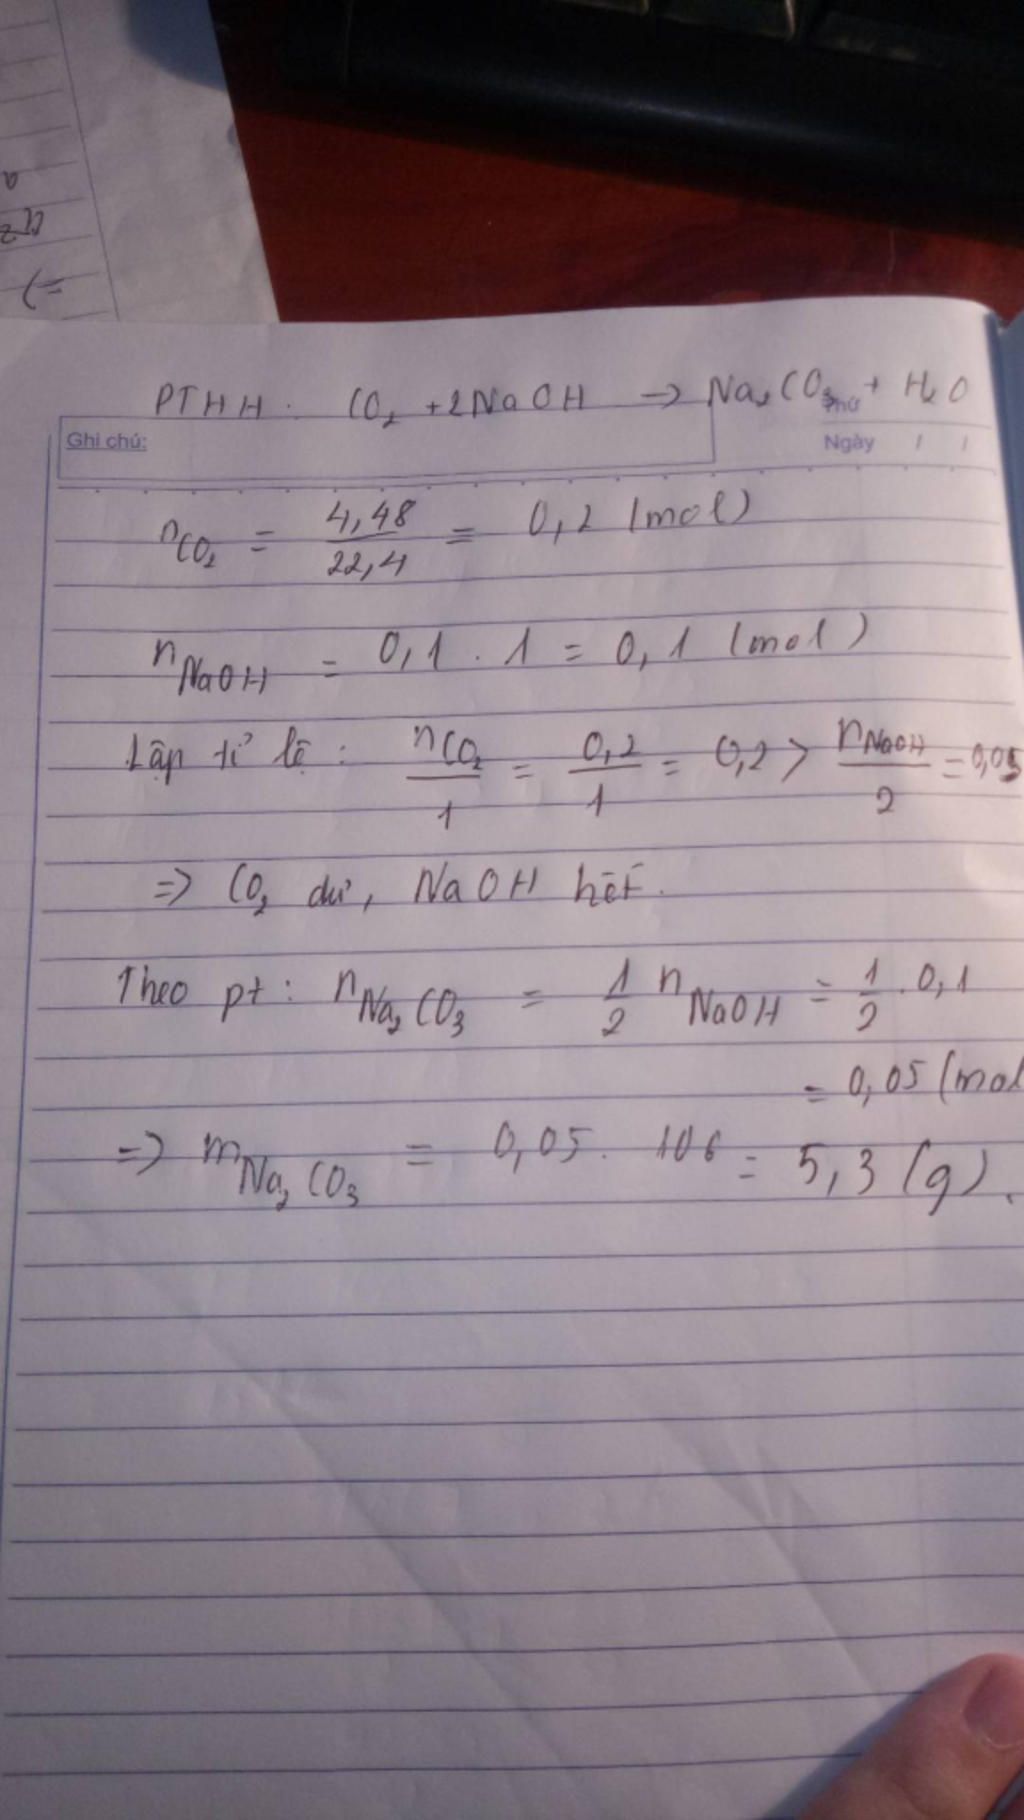 a
=)
PTHH: CO₂ + 2NaOH → Na₂CO₃ + H₂O
Thứ
Ghi chú:
Ngày / /
nCO₂ = 4,48/22,4 = 0,2 (mol)
nNaOH = 0,1 . 1 = 0,1 (mol)
Lập tỉ lệ: nCO₂/1 = 0,2/1 = 0,2 > nNaOH/2 = 0,05
=> CO₂ dư, NaOH hết.
Theo pt: nNa₂CO₃ = 1/2 nNaOH = 1/2 . 0,1
= 0,05 (mol
=> mNa₂CO₃ = 0,05 . 106 = 5,3 (g).